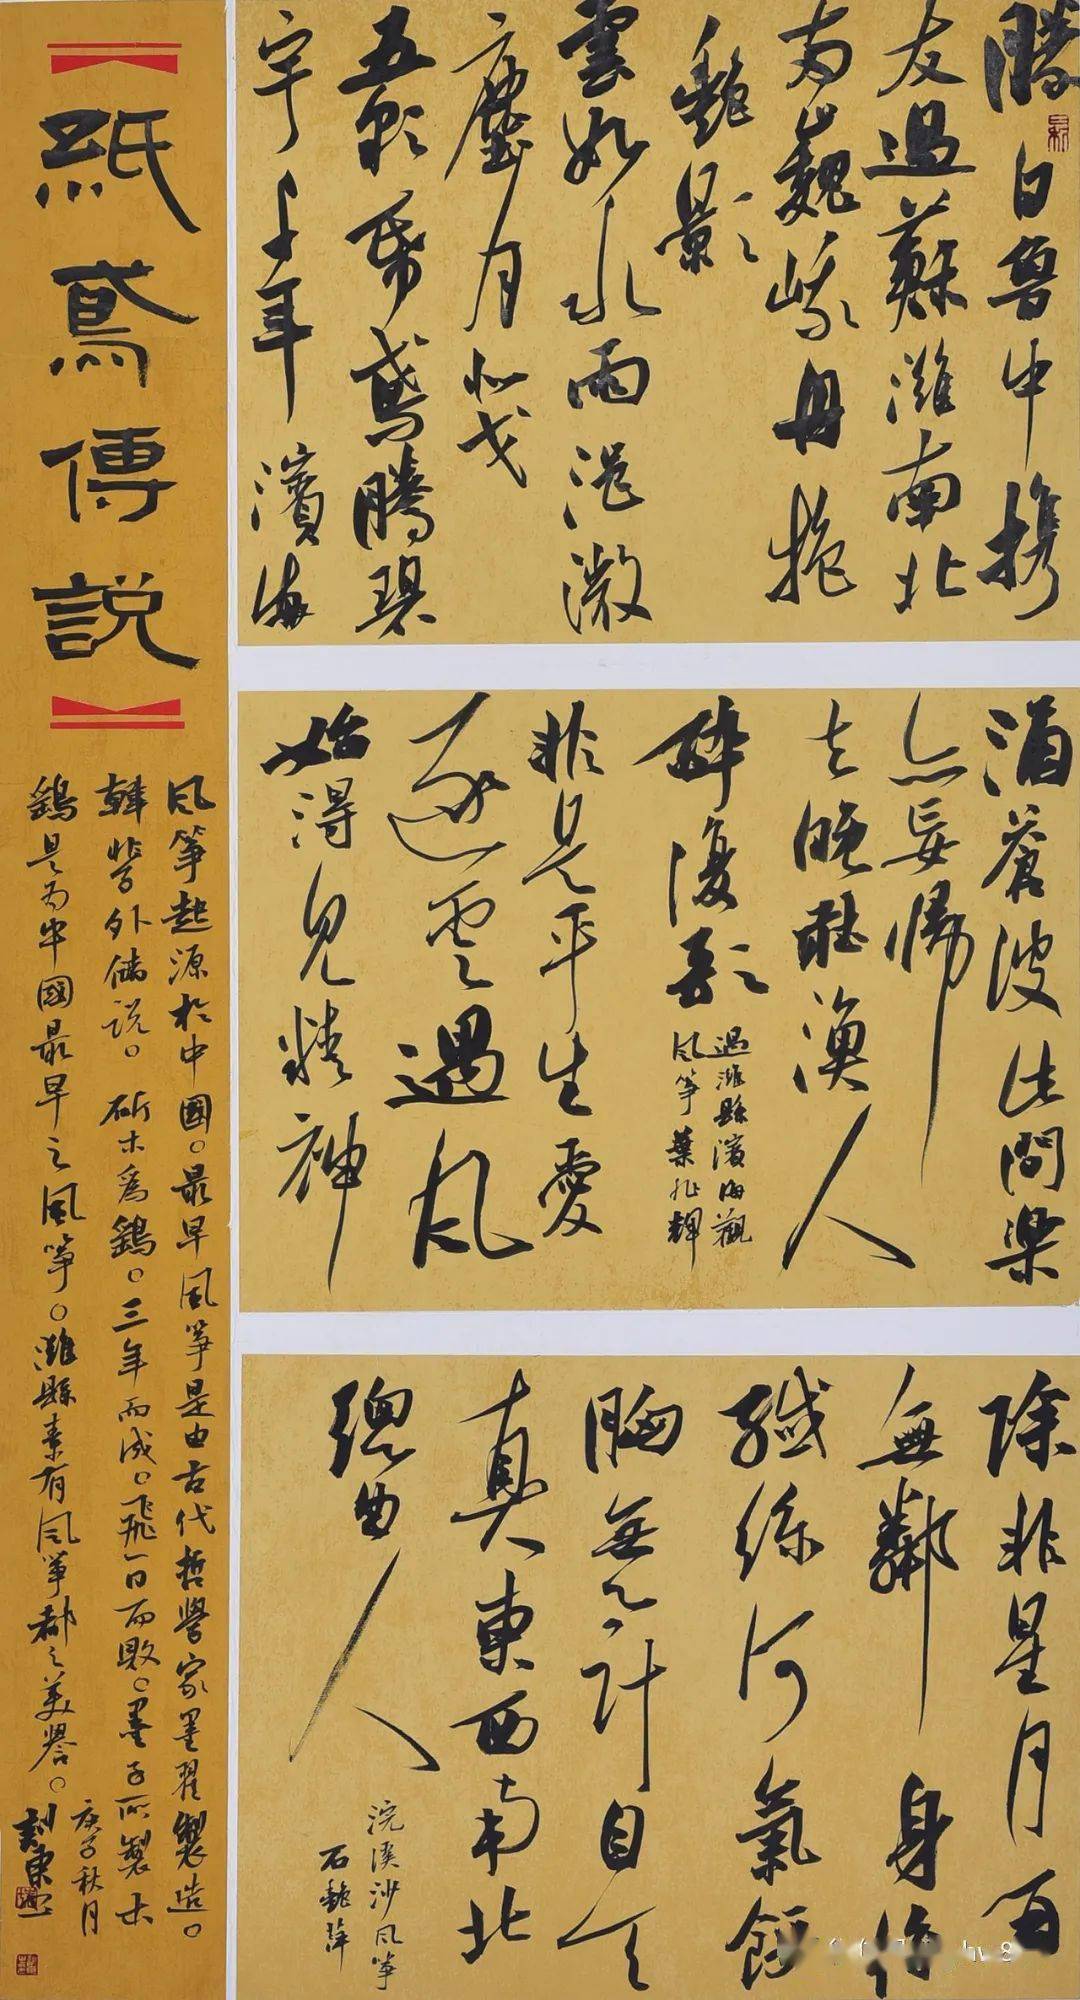 紙鳶傳說
風箏起源於中國。最早風箏是由古代哲學家墨翟製造。
韓非外儲説。斫木爲鷂。三年而成。飛一日而敗。墨子所製木
鷂是爲中國最早之風箏。濰縣素有風箏都之美譽。
庚子秋月
勝日魯中携
友過蘇濰南北
兩巍峨舟拖
艷影
雲如水雨浥微
塵月似戈
五彩帋鳶騰碧
宇千年濱海
酒蒼波此間樂
亦妄歸
去晚醉漁人
醉復歌
過濰縣濱海觀
風箏葉兆輝
非是平生愛
逐雲遇風
始得見精神
除非星月百
無鄰身後
纖絲何氣餒
胸無心計自天
真東西南北
總由人
浣溪沙風箏
石艷萍